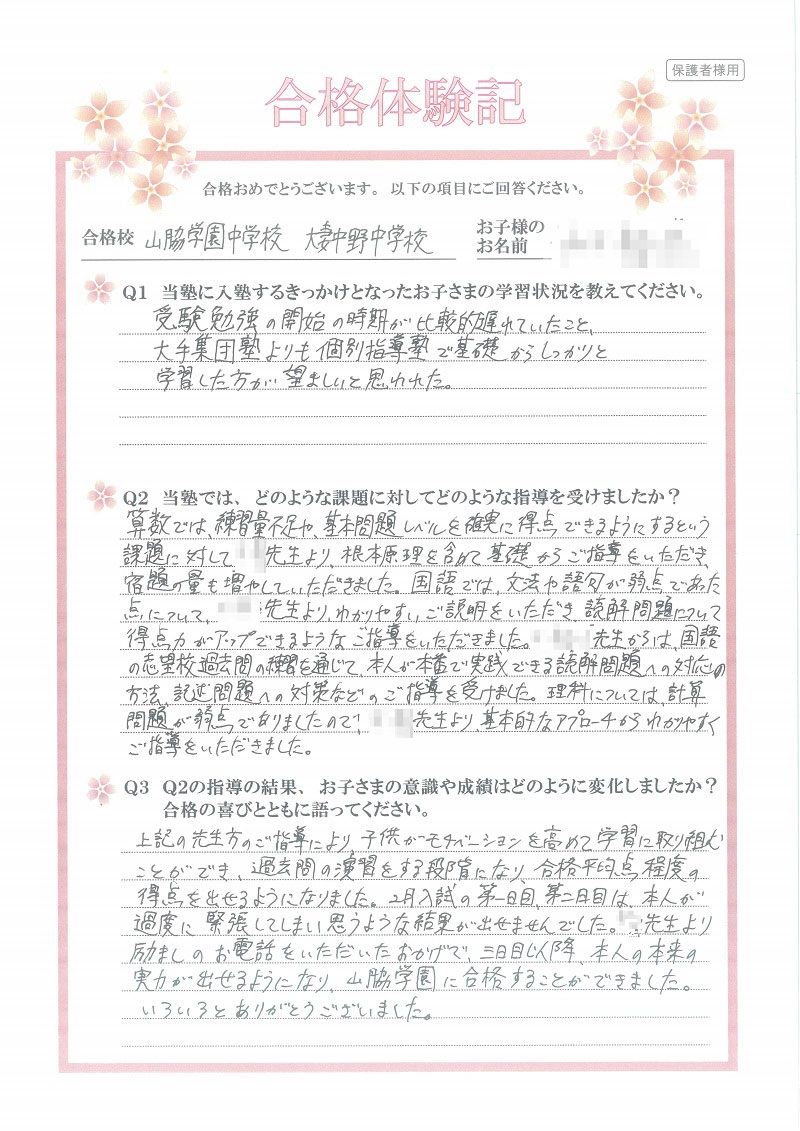 保護者様用
合格体験記
合格おめでとうございます。以下の項目にご回答ください。
合格校 山脇学園中学校 大妻中野中学校
お子様の
お名前
Q1 当塾に入塾するきっかけとなったお子さまの学習状況を教えてください。
受験勉強の開始の時期が比較的遅れていたこと、
大手集団塾よりも個別指導塾で基礎からしっかりと
学習した方が望ましいと思われた。
Q2 当塾では、どのような課題に対してどのような指導を受けましたか？
算数では、練習量不足や、基本問題レベルを確実に得点できるようにするという
課題に対して 先生より、根本原理を含めて基礎からご指導をいただき、
宿題の量も増やしていただきました。国語では、文法や語句が弱点であった
点について、 先生より、わかりやすいご説明をいただき、読解問題について
得点力がアップできるようなご指導をいただきました。 先生からは、国語
の志望校過去問の練習を通じて、本人が本番で実践できる読解問題への対応の
方法、記述問題への対策などのご指導を受けました。理科については、計算
問題が弱点でありましたので、 先生より、基本的なアプローチからわかりやすく
ご指導をいただきました。
Q3 Q2の指導の結果、お子さまの意識や成績はどのように変化しましたか？
合格の喜びとともに語ってください。
上記の先生方のご指導により、子供がモチベーションを高めて学習に取り組む
ことができ、過去問の演習をする段階になり、合格平均点程度の
得点を出せるようになりました。2月入試の第一日目、第二日目は、本人が
過度に緊張してしまい思うような結果が出せませんでした。 先生より
励ましのお電話をいただいたおかげで、三日目以降、本人の本来の
実力が出せるようになり、山脇学園に合格することができました。
いろいろとありがとうございました。